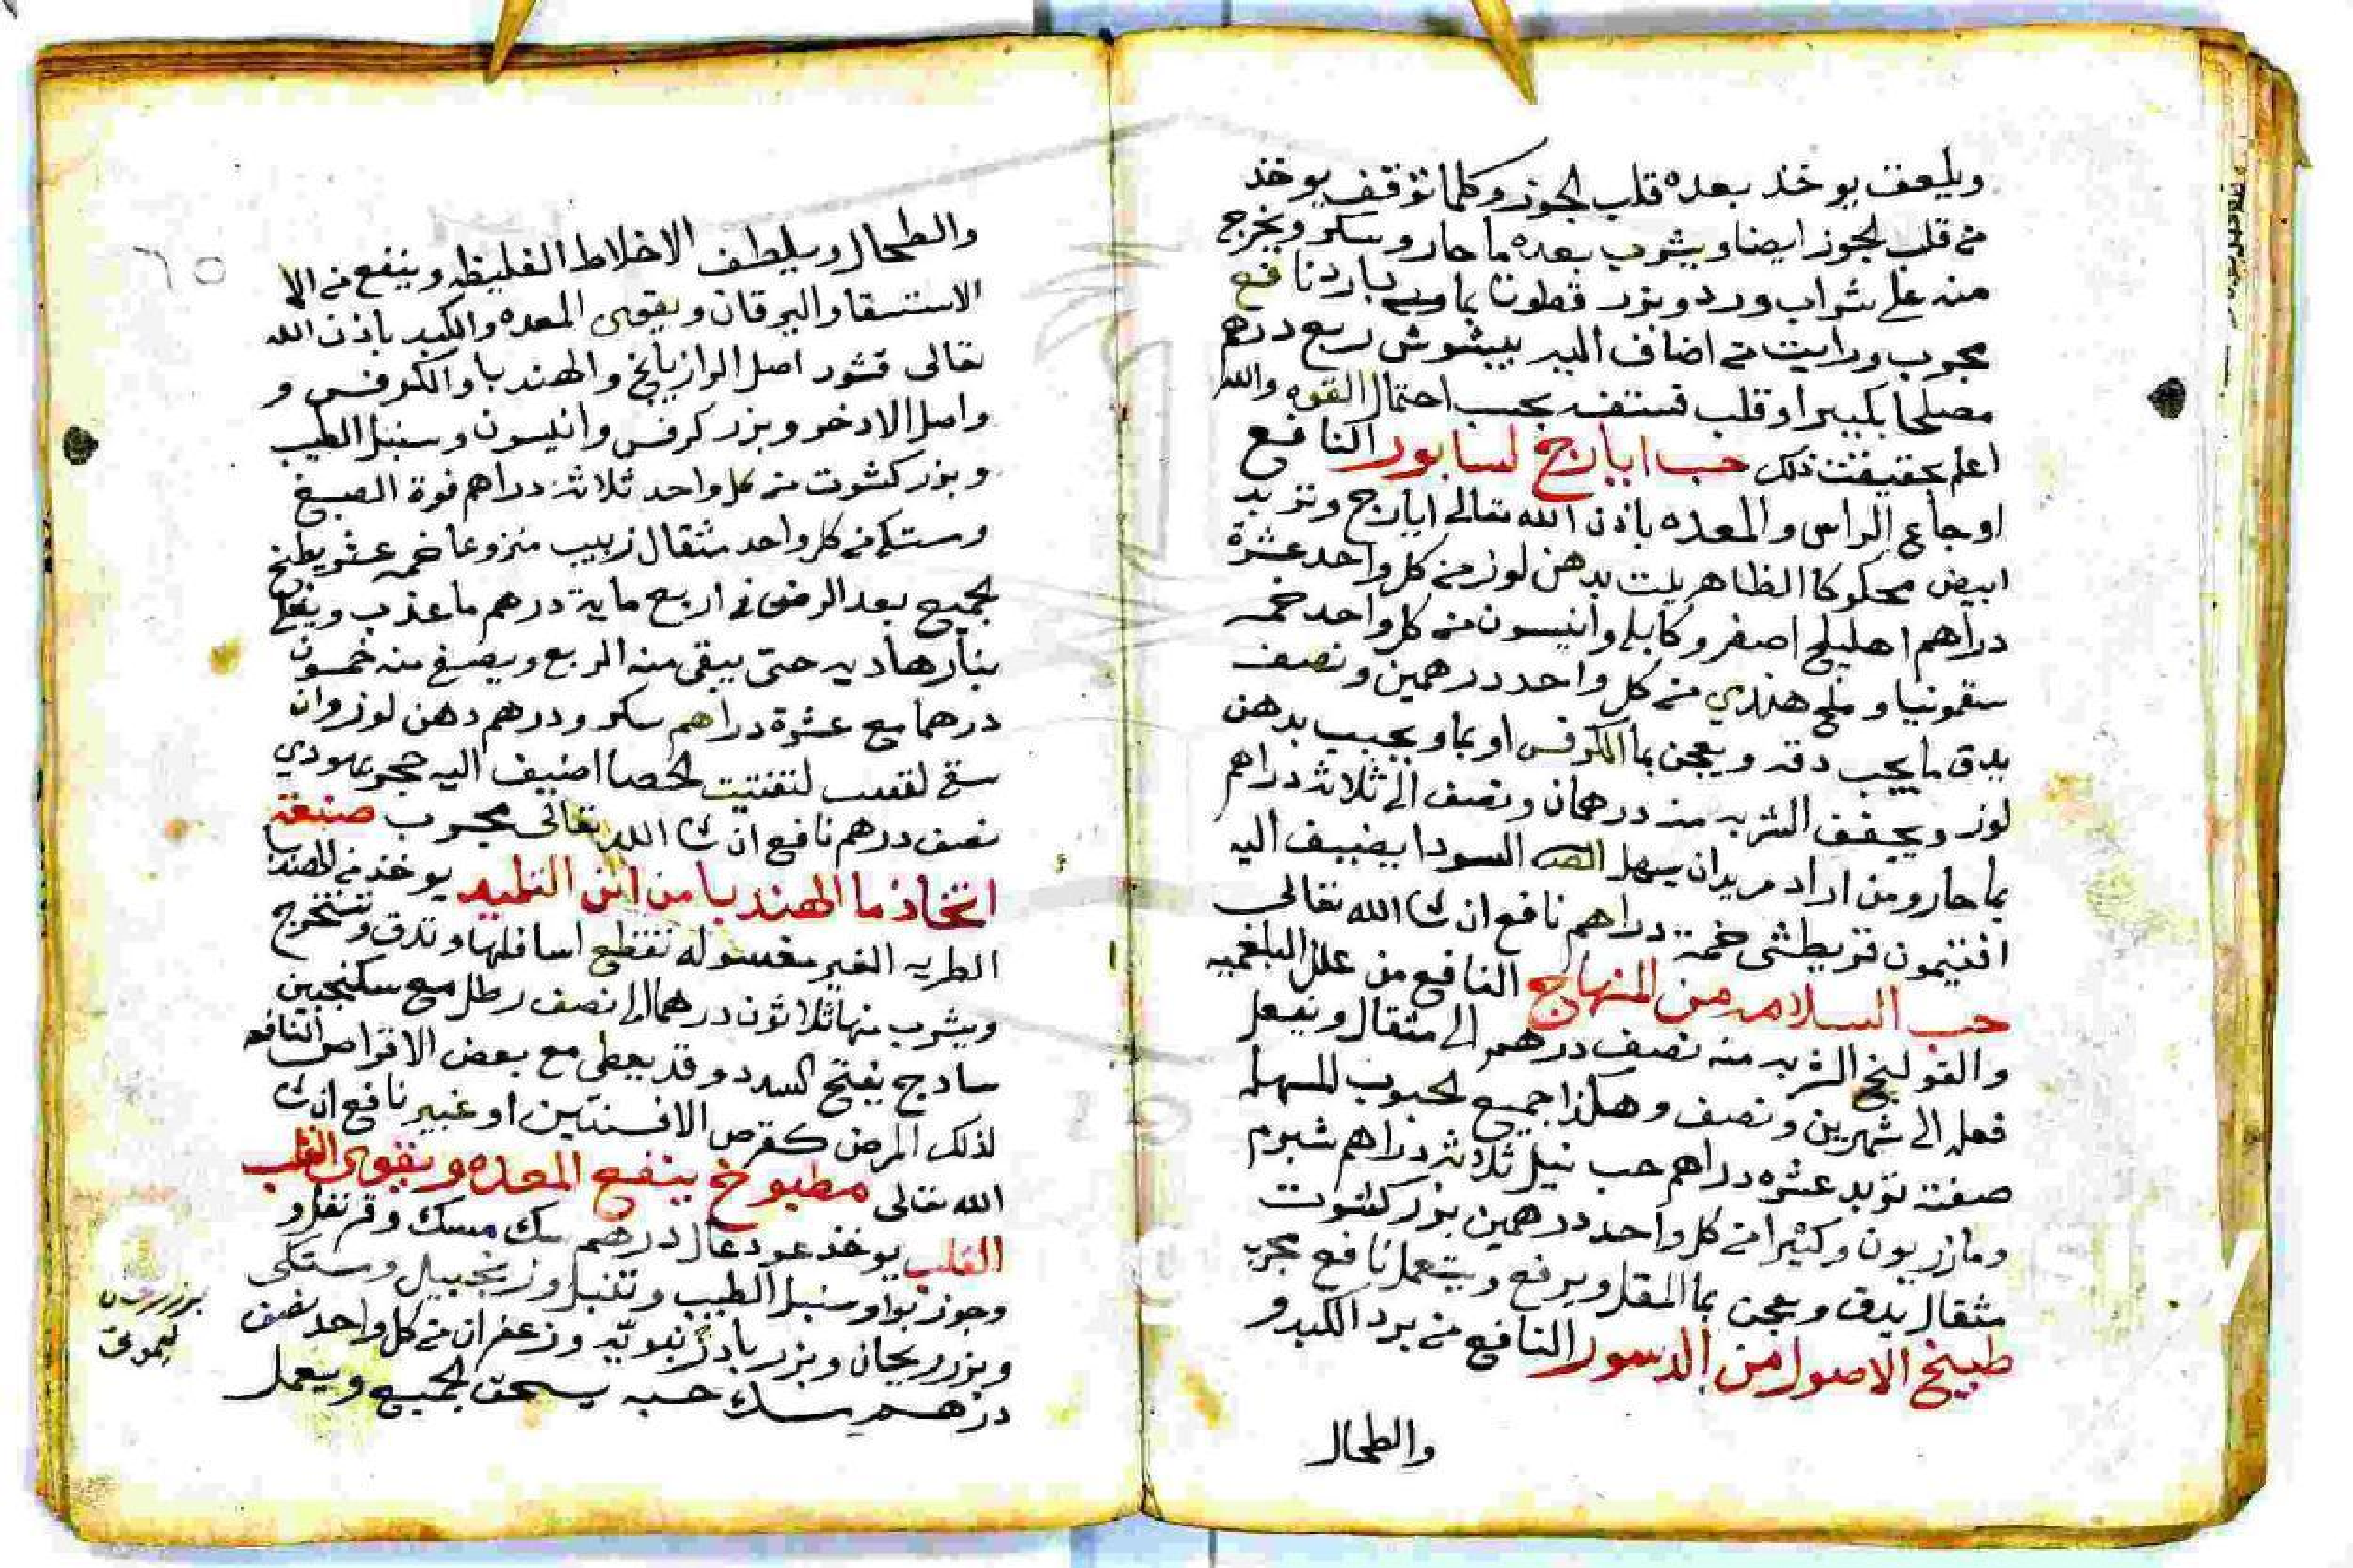 ويلعق يوخذ بعده قلب الجوز وكلما توقف يوخذ
من قلب الجوز ايضا ويشرب بعده ما حار وسكر ويخرج
منه على شراب ورد وبزر قطونا بما بارد نافع
مجرب ورايت من اضاف البير بيشوش ربع درهم
مصلحا بكبيرا وقلب فستق بحسب احتمال القوه والله
اعلم بحقيقت ذلك حب ايارج لسابور النافع
اوجاع الراس والمعده باذن الله تعالى ايارج وتربد
ابيض محكوكا الظاهر يلت بدهن لوز من كل واحد عشرة
دراهم اهليلج اصفر وكابلي وانيسون من كل واحد خمسه
سقمونيا وملح هندي من كل واحد درهمين ونصف
يدق ما يجب دقه ويعجن بما الكرفس او بما ويحبب بدهن
لوز ويجفف الشربه منه درهمان ونصف الى ثلاثة دراهم
بما حار ومن اراد مريدان يسهل السودا يضيف اليه
افتيمون قريطشى خمسة دراهم نافع ان شا الله تعالى
حب السلامه من المنهاج النافع من علل البلغميه
والقولنج الشربه منه نصف درهم الى مثقال ونيعل
فعله الى شهرين ونصف وهكذا جميع الحبوب المسهله
صفته تربد عشره دراهم حب نيل ثلاثة دراهم شبرم
ومازريون وكثيرا من كل واحد درهمين بزر كشوت
مثقال يدق ويعجن بما المقل ويرفع ويستعمل نافع مجرب
طبيخ الاصول من الدسور النافع من برد الكبد و
والطحال
٦٥
والطحال ويلطف الاخلاط الغليظه وينفع من الا
الاستسقا واليرقان ويقوى المعده والكبد باذن الله
تعالى قشور اصل الرازيانج والهندبا والكرفس و
واصل الادخر وبزر كرفس وانيسون وسنبل الطيب
وبزر كشوت من كل واحد ثلاثة دراهم فوة الصبغ
ومستكى من كل واحد مثقال زبيب منزوعا خمسه عشر يطبخ
الجميع بعد الرض في اربع ماية درهم ما عذب ويغلى
بنار هاديه حتى يبقى منه الربع ويصفى منه خمسون
درهما مع عشرة دراهم سكر ودرهم دهن لوز وان
سقى لتفتيت الحصا اضيف اليه حجر يهودي
نصف درهم نافع ان شا الله تعالى مجرب صنعة
اتخاذ ما الهندبا من ابن التلميد يوخذ من الهندبا
الطريه الغير مغسوله تقطع اسافلها وتدق وتستخرج
ويشرب منها ثلاثون درهما الى نصف رطل مع سكنجبين
سادج يفتح السدد وقد يعطى مع بعض الاقراص النافعه
لذلك المرض كقرص الافسنتين او غير نافع ان شا
الله تعالى مطبوخ ينفع المعده ويقوى القلب
القلب يوخذ عود عال درهم سك مسك وقرنفل و
وجوز بوا وسنبل الطيب وتنبل وزنجبيل ومستكى
وبزر ريحان وبزر بادرنبويه وزعفران من كل واحد نصف
درهم مسك حبه يسحق الجميع ويعمل
ليموت